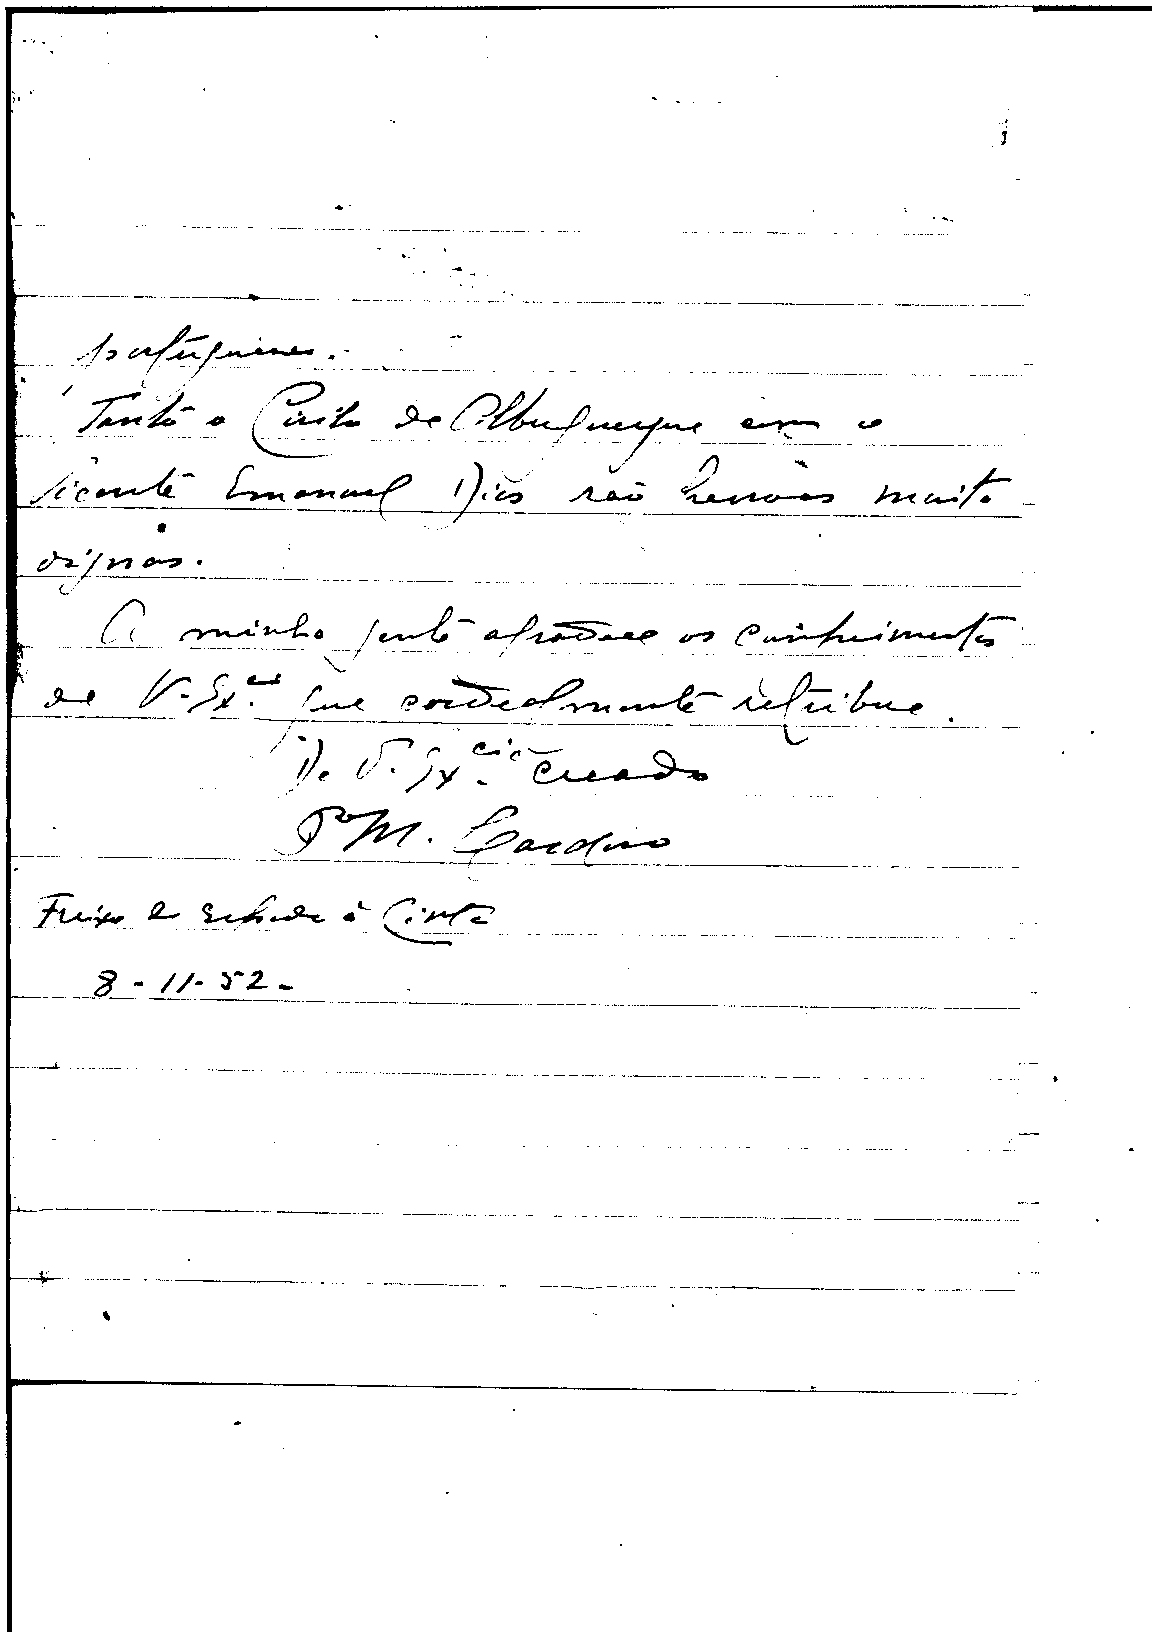 portuguesas.
Tanto o Cirilo de Albuquerque como o
Vicente Emanuel Dias são pessoas muito
dignas.
A minha gente agradece os cumprimentos
de V. Ex.as que cordealmente retribue.
De V. Ex.cia creado
P.e M. Cardoso
Freixo de Espada à Cinta
8-11-52-